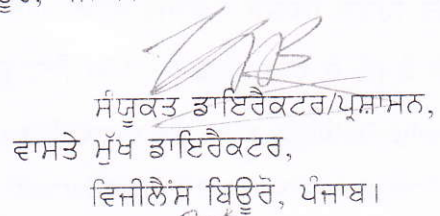 ਸੰਯੂਕਤ ਡਾਇਰੈਕਟਰ/ਪ੍ਰਸ਼ਾਸਨ,
ਵਾਸਤੇ ਮੁੱਖ ਡਾਇਰੈਕਟਰ,
ਵਿਜੀਲੈਂਸ ਬਿਊਰੋ, ਪੰਜਾਬ।